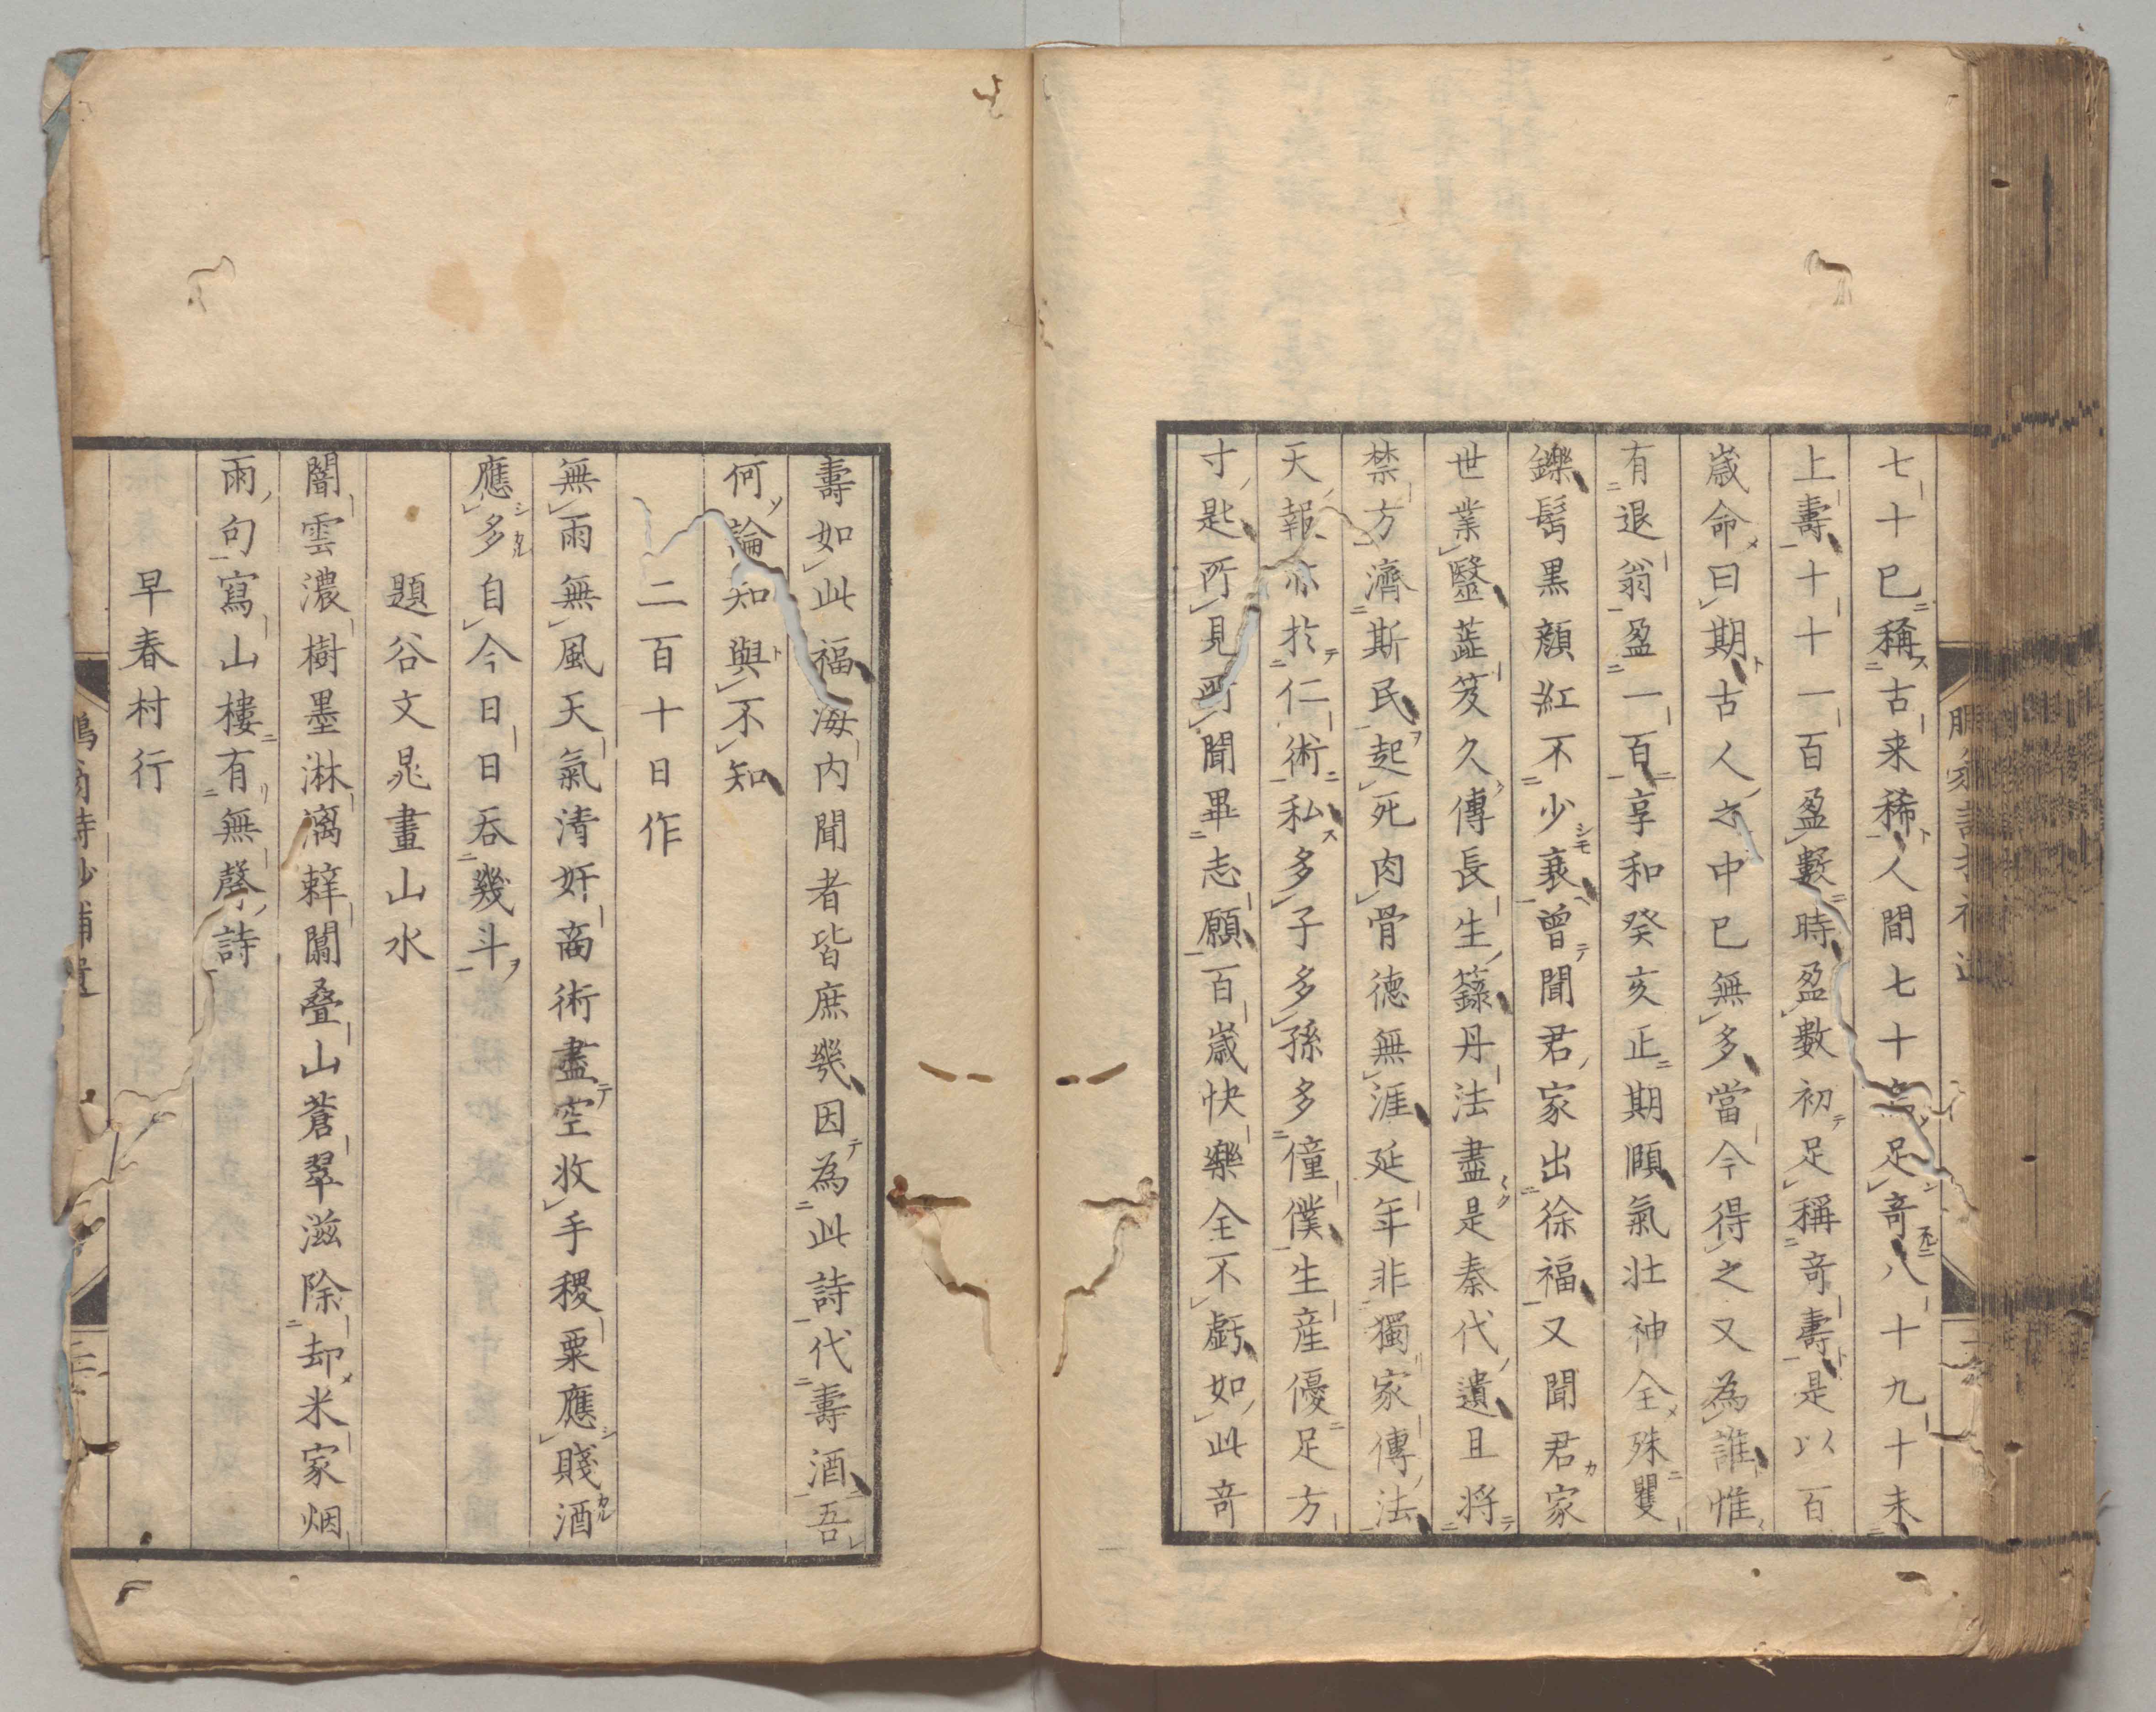 七十已稱古来稀人間七十足奇八十九十未
上壽十十一百盈數時盈數初足稱奇壽是以百
歳命曰期古人之中已無多當今得之又為誰惟
有退翁盈一百享和癸亥正期頤氣壮神全殊矍
鑠髩黒顔紅不少衰曾聞君家出徐福又聞君家
世業醫葢笈久傳長生籙丹法盡是秦代遺且将
禁方濟斯民起死肉骨徳無涯延年非獨家傳法
天報亦於仁術私多子多孫多僮僕生産優足方
寸匙所見所聞畢志願百歳快樂全不虧如此奇
壽如此福海内聞者皆庶幾因為此詩代壽酒吾
何論知與不知
二百十日作
無雨無風天氣清奸商術盡空收手稷粟應賤酒
應多自今日日呑幾斗
題谷文晁畫山水
闇雲濃樹墨淋漓鞾闒疊山蒼翠滋除却米家烟
雨句寫山樓有無聲詩
早春村行